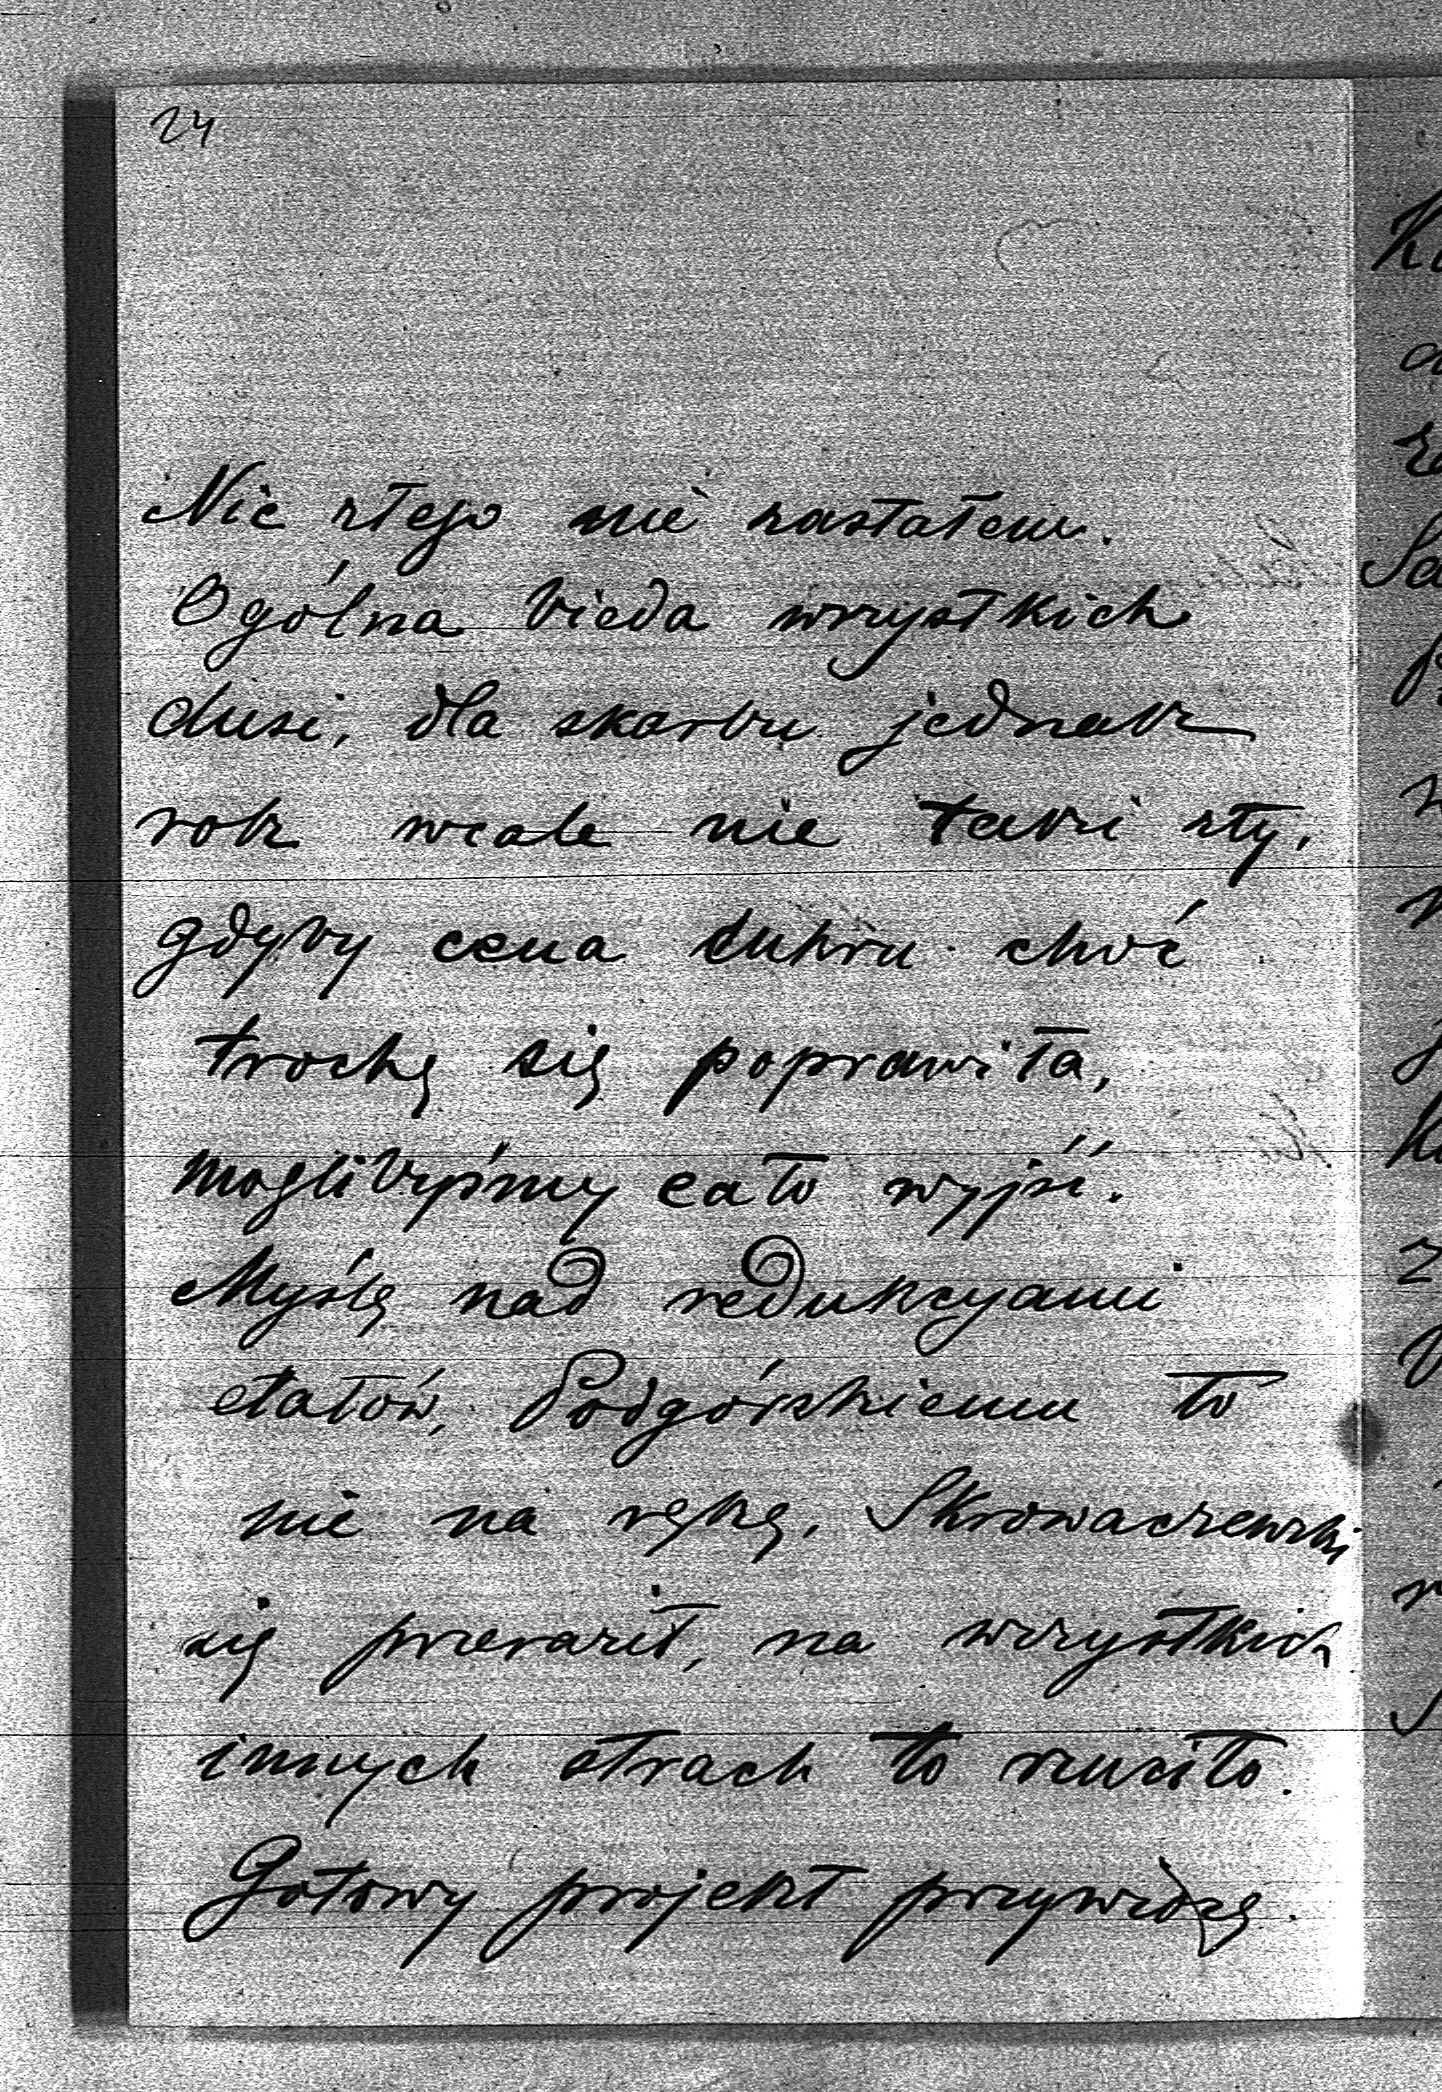 24
Nic złego nie zastałem.
Ogólna bieda wszystkich
dusi, dla skarbu jednak
rok wcale nie taki zły,
gdyby cena cukru choć
trochę się poprawiła,
moglibyśmy cało wyjść.
Myślę nad redukcyami
etatów, Podgórskiemu to
nie na rękę, Skrowaczewski
się przeraził, na wszystkich
innych strach to rzuciło.
Gotowy projekt przywiozę.